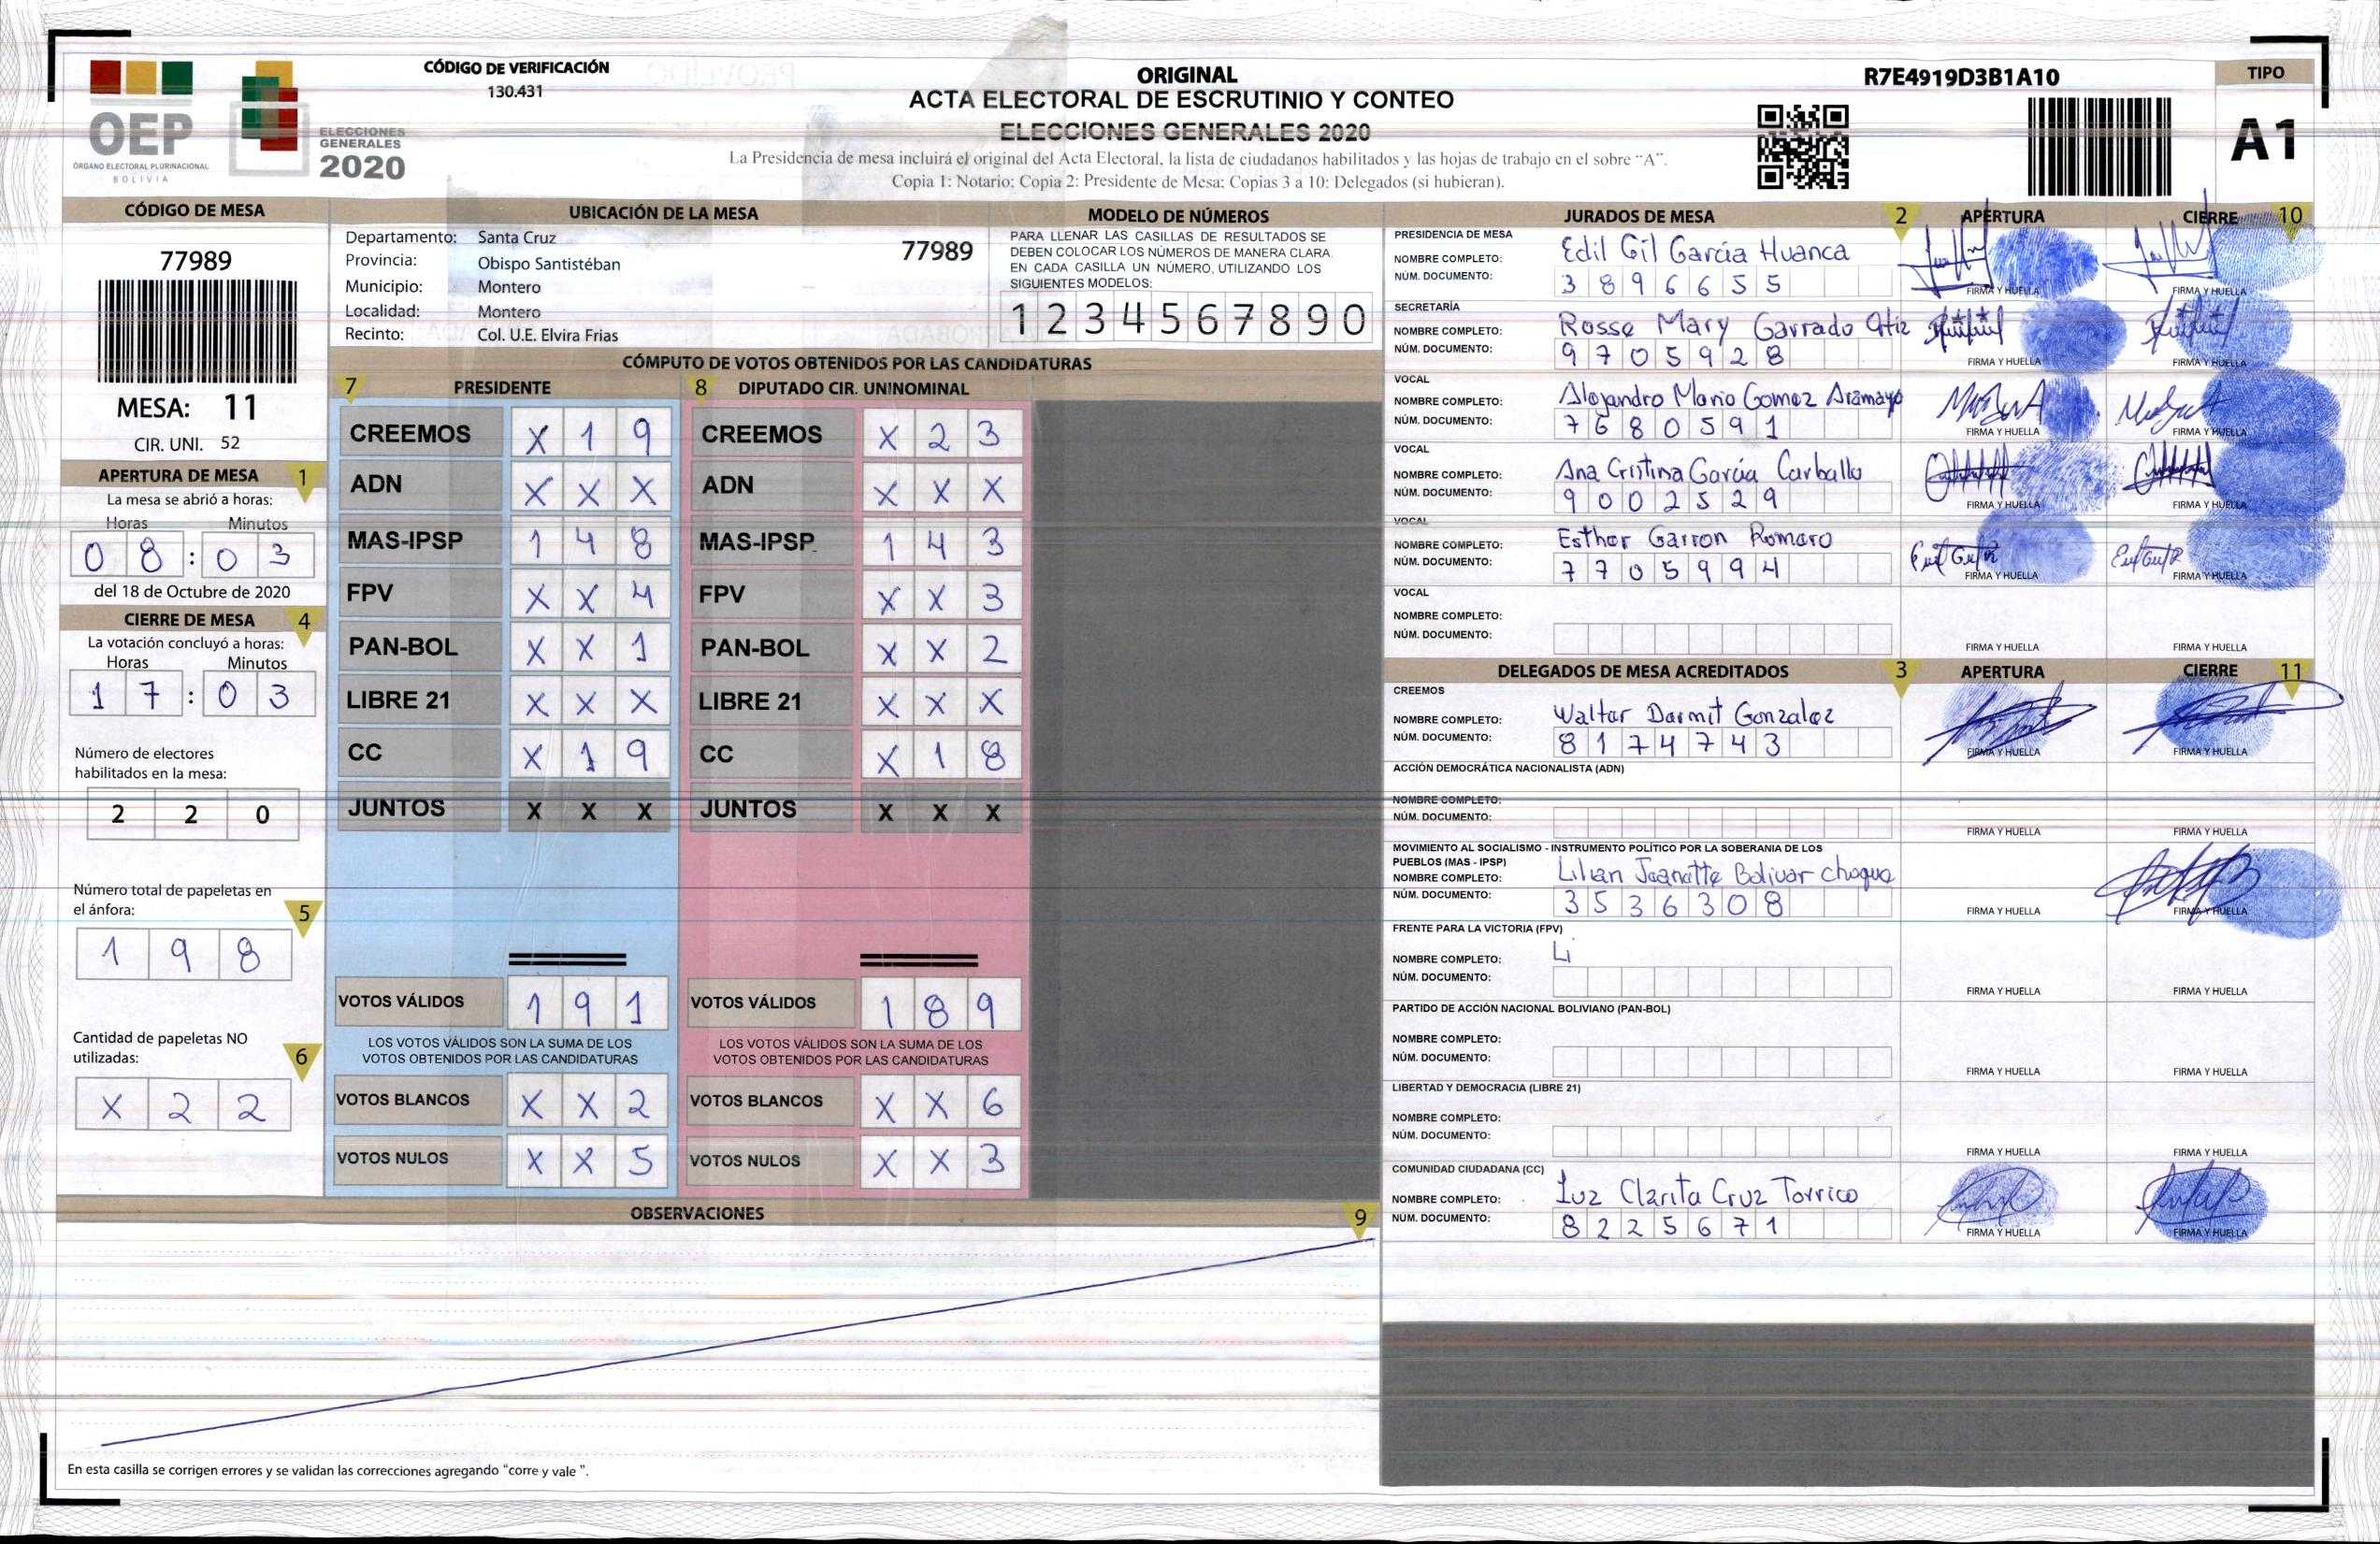 CÓDIGO DE VERIFICACIÓN
130.431
OEP
ÓRGANO ELECTORAL PLURINACIONAL
BOLIVIA
ELECCIONES
GENERALES
2020
ORIGINAL
ACTA ELECTORAL DE ESCRUTINIO Y CONTEO
ELECCIONES GENERALES 2020
La Presidencia de mesa incluirá el original del Acta Electoral, la lista de ciudadanos habilitados y las hojas de trabajo en el sobre “A”.
Copia 1: Notario; Copia 2: Presidente de Mesa; Copias 3 a 10: Delegados (si hubieran).
R7E4919D3B1A10
TIPO
A1
CÓDIGO DE MESA
77989
MESA: 11
CIR. UNI. 52
APERTURA DE MESA 1
La mesa se abrió a horas:
Horas Minutos
0 8 : 0 3
del 18 de Octubre de 2020
CIERRE DE MESA 4
La votación concluyó a horas:
Horas Minutos
1 7 : 0 3
Número de electores
habilitados en la mesa:
2 2 0
Número total de papeletas en
el ánfora: 5
1 9 8
Cantidad de papeletas NO
utilizadas: 6
X 2 2
UBICACIÓN DE LA MESA
Departamento: Santa Cruz
77989
Provincia: Obispo Santistéban
Municipio: Montero
Localidad: Montero
Recinto: Col. U.E. Elvira Frias
MODELO DE NÚMEROS
PARA LLENAR LAS CASILLAS DE RESULTADOS SE
DEBEN COLOCAR LOS NÚMEROS DE MANERA CLARA
EN CADA CASILLA UN NÚMERO, UTILIZANDO LOS
SIGUIENTES MODELOS:
1 2 3 4 5 6 7 8 9 0
CÓMPUTO DE VOTOS OBTENIDOS POR LAS CANDIDATURAS
7 PRESIDENTE
CREEMOS X 1 9
ADN X X X
MAS-IPSP 1 4 8
FPV X X 4
PAN-BOL X X 1
LIBRE 21 X X X
CC X 1 9
JUNTOS X X X
VOTOS VÁLIDOS 1 9 1
LOS VOTOS VÁLIDOS SON LA SUMA DE LOS
VOTOS OBTENIDOS POR LAS CANDIDATURAS
VOTOS BLANCOS X X 2
VOTOS NULOS X X 5
8 DIPUTADO CIR. UNINOMINAL
CREEMOS X 2 3
ADN X X X
MAS-IPSP 1 4 3
FPV X X 3
PAN-BOL X X 2
LIBRE 21 X X X
CC X 1 8
JUNTOS X X X
VOTOS VÁLIDOS 1 8 9
LOS VOTOS VÁLIDOS SON LA SUMA DE LOS
VOTOS OBTENIDOS POR LAS CANDIDATURAS
VOTOS BLANCOS X X 6
VOTOS NULOS X X 3
OBSERVACIONES 9
En esta casilla se corrigen errores y se validan las correcciones agregando “corre y vale ”.
JURADOS DE MESA 2 APERTURA CIERRE 10
PRESIDENCIA DE MESA
NOMBRE COMPLETO: Edil Gil García Huanca
NÚM. DOCUMENTO: 3 8 9 6 6 5 5
FIRMA Y HUELLA FIRMA Y HUELLA
SECRETARÍA
NOMBRE COMPLETO: Rosse Mary Garrado Ortiz
NÚM. DOCUMENTO: 9 7 0 5 9 2 8
FIRMA Y HUELLA FIRMA Y HUELLA
VOCAL
NOMBRE COMPLETO: Alejandro Mario Gomez Aramayo
NÚM. DOCUMENTO: 7 6 8 0 5 9 1
FIRMA Y HUELLA FIRMA Y HUELLA
VOCAL
NOMBRE COMPLETO: Ana Cristina García Carballo
NÚM. DOCUMENTO: 9 0 0 2 5 2 9
FIRMA Y HUELLA FIRMA Y HUELLA
VOCAL
NOMBRE COMPLETO: Esther Garron Romero
NÚM. DOCUMENTO: 7 7 0 5 9 9 4
FIRMA Y HUELLA FIRMA Y HUELLA
VOCAL
NOMBRE COMPLETO:
NÚM. DOCUMENTO:
FIRMA Y HUELLA FIRMA Y HUELLA
DELEGADOS DE MESA ACREDITADOS 3 APERTURA CIERRE 11
CREEMOS
NOMBRE COMPLETO: Walter Darmit Gonzalez
NÚM. DOCUMENTO: 8 1 7 4 7 4 3
FIRMA Y HUELLA FIRMA Y HUELLA
ACCIÓN DEMOCRÁTICA NACIONALISTA (ADN)
NOMBRE COMPLETO:
NÚM. DOCUMENTO:
FIRMA Y HUELLA FIRMA Y HUELLA
MOVIMIENTO AL SOCIALISMO - INSTRUMENTO POLÍTICO POR LA SOBERANIA DE LOS
PUEBLOS (MAS - IPSP)
NOMBRE COMPLETO: Lilian Jeanette Bolivar choque
NÚM. DOCUMENTO: 3 5 3 6 3 0 8
FIRMA Y HUELLA FIRMA Y HUELLA
FRENTE PARA LA VICTORIA (FPV)
NOMBRE COMPLETO: Li
NÚM. DOCUMENTO:
FIRMA Y HUELLA FIRMA Y HUELLA
PARTIDO DE ACCIÓN NACIONAL BOLIVIANO (PAN-BOL)
NOMBRE COMPLETO:
NÚM. DOCUMENTO:
FIRMA Y HUELLA FIRMA Y HUELLA
LIBERTAD Y DEMOCRACIA (LIBRE 21)
NOMBRE COMPLETO:
NÚM. DOCUMENTO:
FIRMA Y HUELLA FIRMA Y HUELLA
COMUNIDAD CIUDADANA (CC)
NOMBRE COMPLETO: Luz Clarita Cruz Torrico
NÚM. DOCUMENTO: 8 2 2 5 6 7 1
FIRMA Y HUELLA FIRMA Y HUELLA